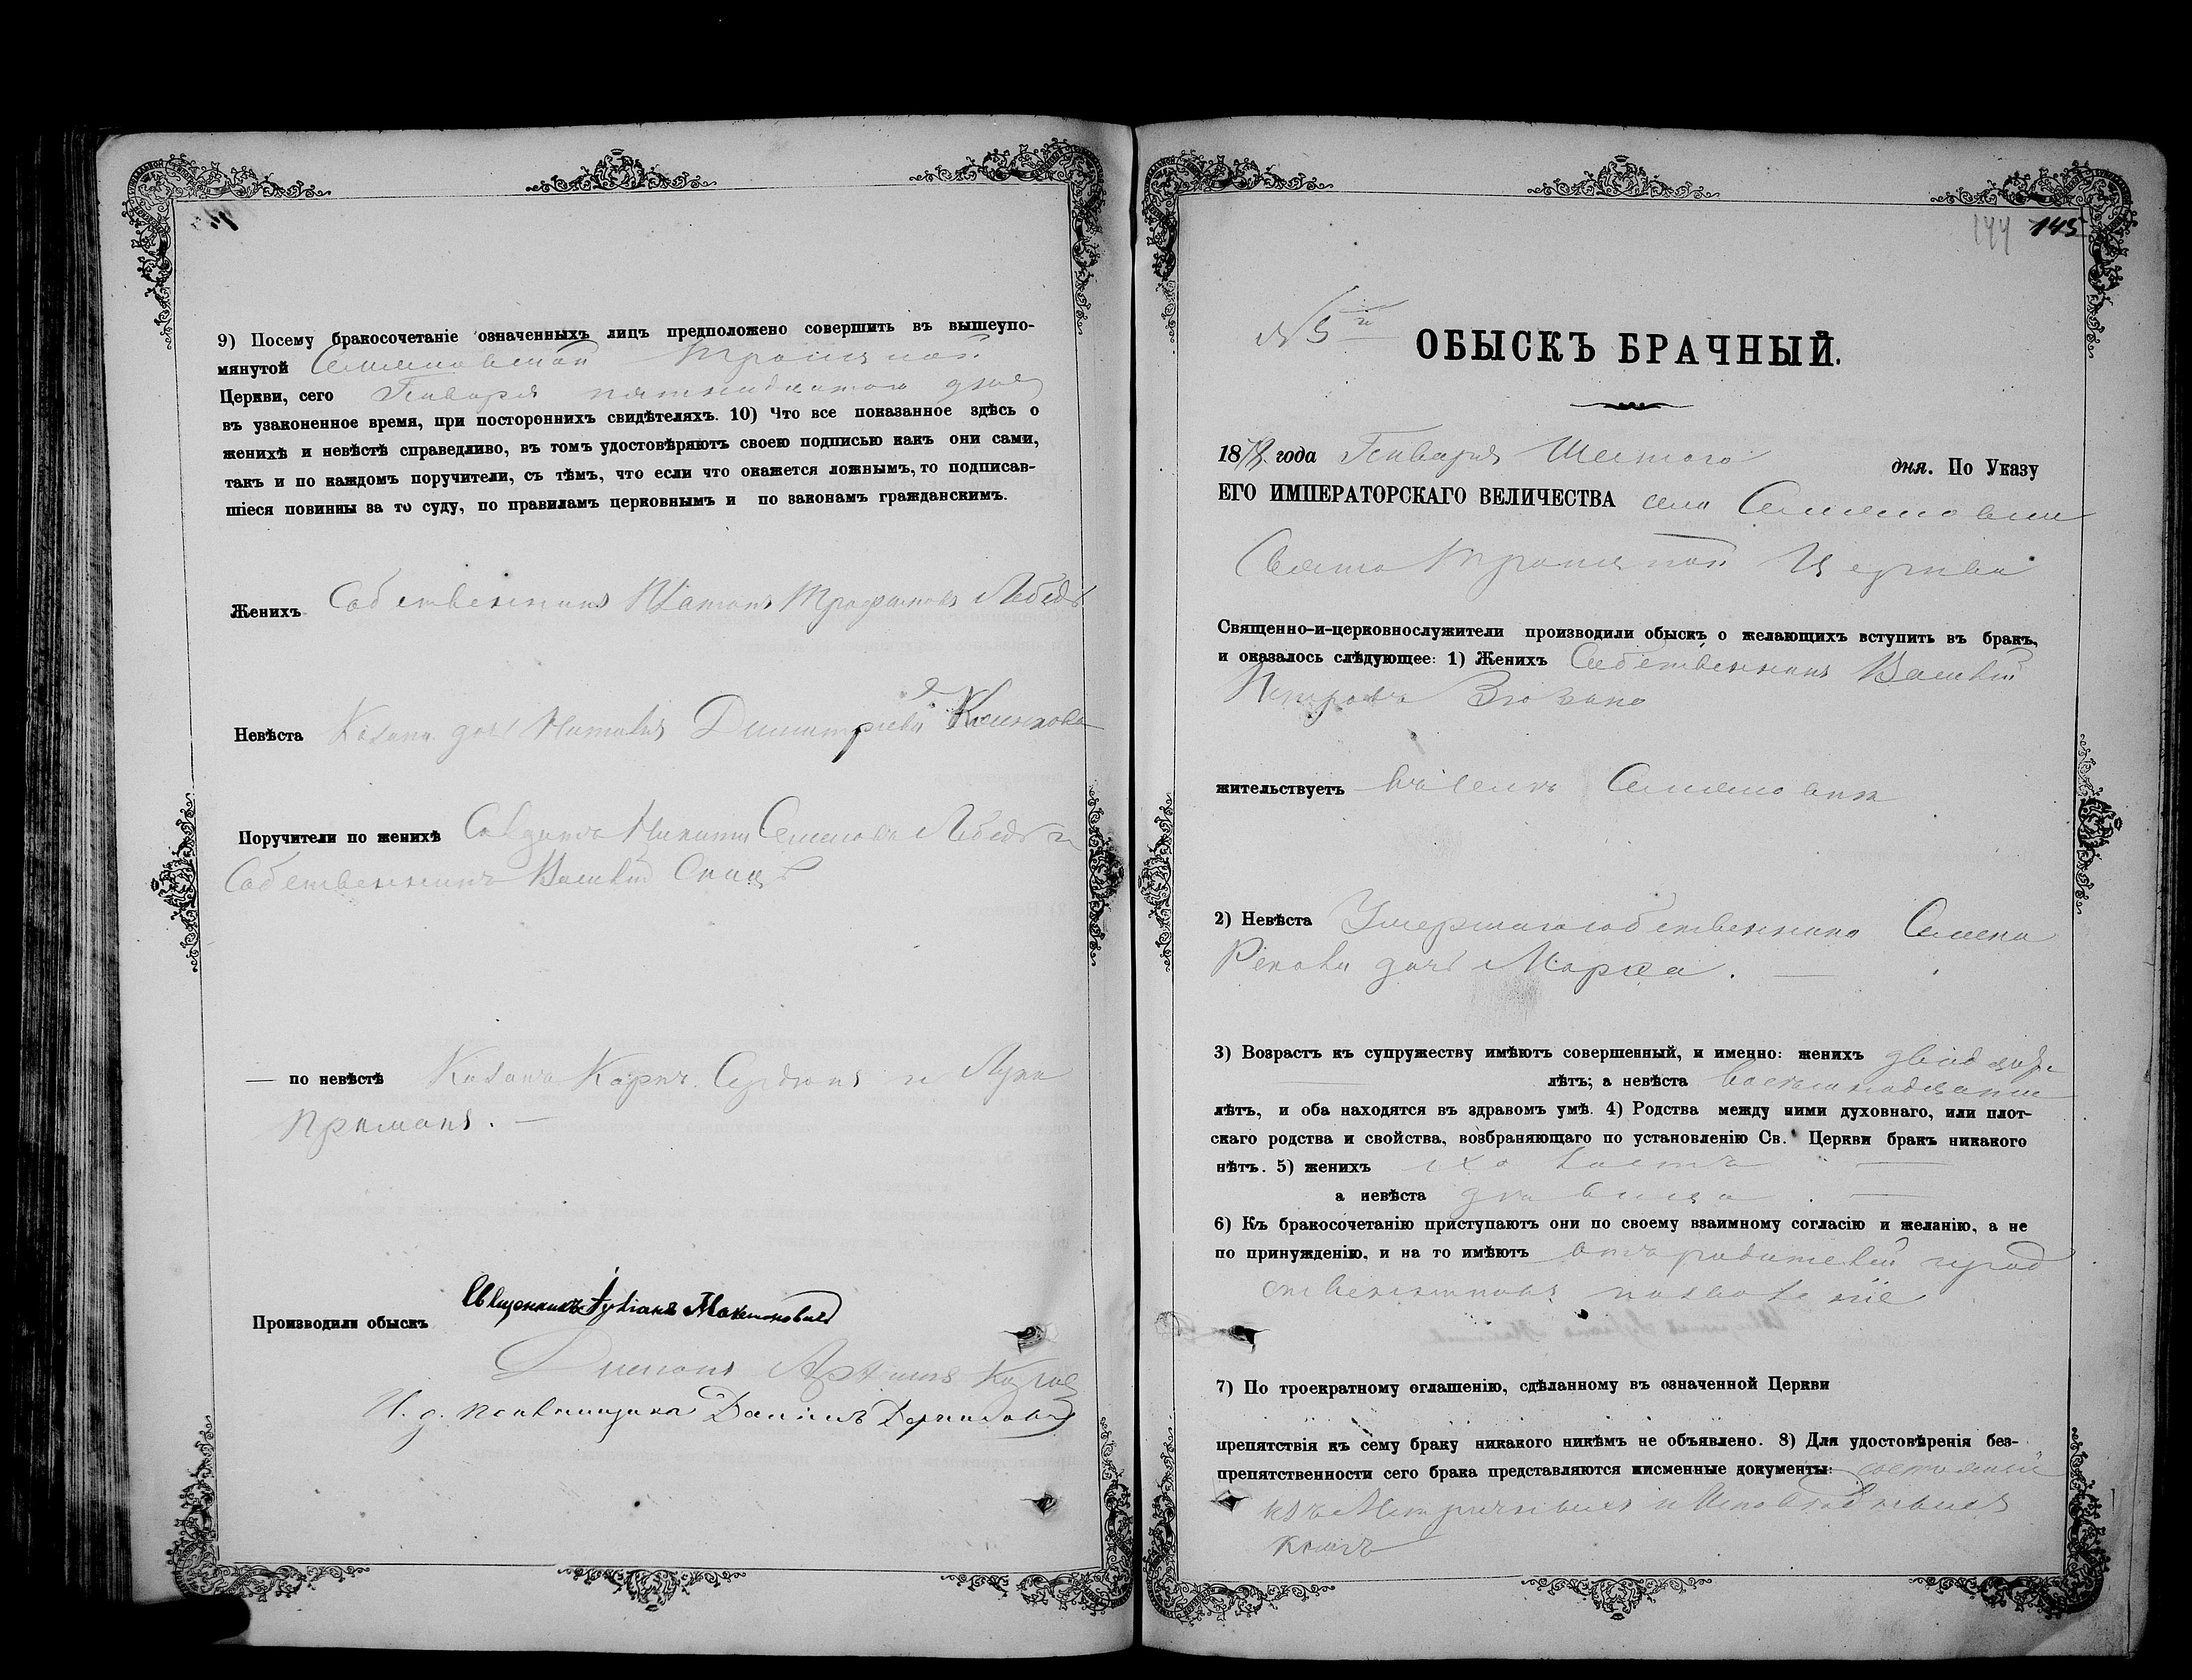 9) Посему бракосочетаніе означенныхъ лицъ предположено совершить въ вышеупо-
мянутой Семеновской Троицкой
Церкви, сего Генваря пятнадцатого дня
въ узаконенное время, при постороннихъ свидѣтеляхъ. 10) Что все показанное здѣсь о
женихѣ и невѣстѣ справедливо, въ томъ удостовѣряютъ своею подписью какъ они сами,
такъ и по каждомъ поручители, съ тѣмъ, что если что окажется ложнымъ, то подписав-
шіеся повинны за то суду, по правиламъ церковнымъ и по законамъ гражданскимъ.
Женихъ Собственникъ Платонъ Трофимовъ Лебедь
Невѣста Козака дочь Наталія Димитріева
Поручители по женихѣ Солдатъ Никита Семеновъ Лебедь и
Собственникъ Василій
— по невѣстѣ Козакъ Карпъ Сердюкъ и Лука
Примакъ. —
Производили обыскъ Священникъ Іуліанъ Максимовичъ
Дьяконъ
И. д. псаломщика Даніилъ
144 145
№ 5й
ОБЫСКЪ БРАЧНЫЙ.
1878 года Генваря Шестого дня. По Указу
ЕГО ИМПЕРАТОРСКАГО ВЕЛИЧЕСТВА села Семеновки
Свято Троицкой Церкви
Священно-и-церковнослужители производили обыскъ о желающихъ вступить въ бракъ,
и оказалось слѣдующее: 1) Женихъ Собственникъ Василій
Петровъ
жительствуетъ въ селѣ Семеновкѣ
2) Невѣста Умершаго собственника Семена
дочь Марѳа. —
3) Возрастъ къ супружеству имѣютъ совершенный, и именно: женихъ
лѣтъ; а невѣста восемнадцати
лѣтъ, и оба находятся въ здравомъ умѣ. 4) Родства между ними духовнаго, или плот-
скаго родства и свойства, возбраняющаго по установленію Св. Церкви бракъ никакого
нѣтъ. 5) женихъ холостъ —
а невѣста дѣвица. —
6) Къ бракосочетанію приступаютъ они по своему взаимному согласію и желанію, а не
по принужденію, и на то имѣютъ отъ родителей и род
ственниковъ позволеніе
7) По троекратному оглашенію, сдѣланному въ означенной Церкви
препятствія къ сему браку никакого никѣмъ не объявлено. 8) Для удостовѣренія без-
препятственности сего брака представляются письменные документы:
изъ Метрическихъ и Исповѣдныхъ
книгъ